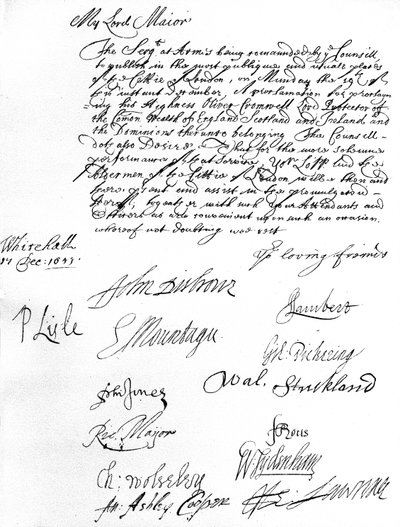 My Lord Maior
The Serj^t at Armes being comaunded by y^e Counsill
to publish in the most publique and usuale places
of the Cittie of London, on Munday the 19th
this instant December, A proclamation for proclam
ing his Highness Oliver Cromwell Lord Protector of
the Comon Wealth of England Scotland and Ireland and
the Dominions thereunto belonging The Counsill
doth also Desire That for the more solemne
performance of that Service, Yo^r Lo^pp and the
Aldermen of the Cittie of London will be then and
there present and assist in the
together with such your Attendants and
Officers as are convenient upon such an occasion
whereof not doubting wee rest
Yo^r loving friends
Whitehall
17 Dec: 1653.
John Disbrowe
Lambert
P Lisle
E Mountagu
Gil: Pickering
John Jones
Wal. Strickland
Ric: Major
F Rous
W Sydenham
Ch: Wolseley
An: Ashley Cooper
He: Lawrence